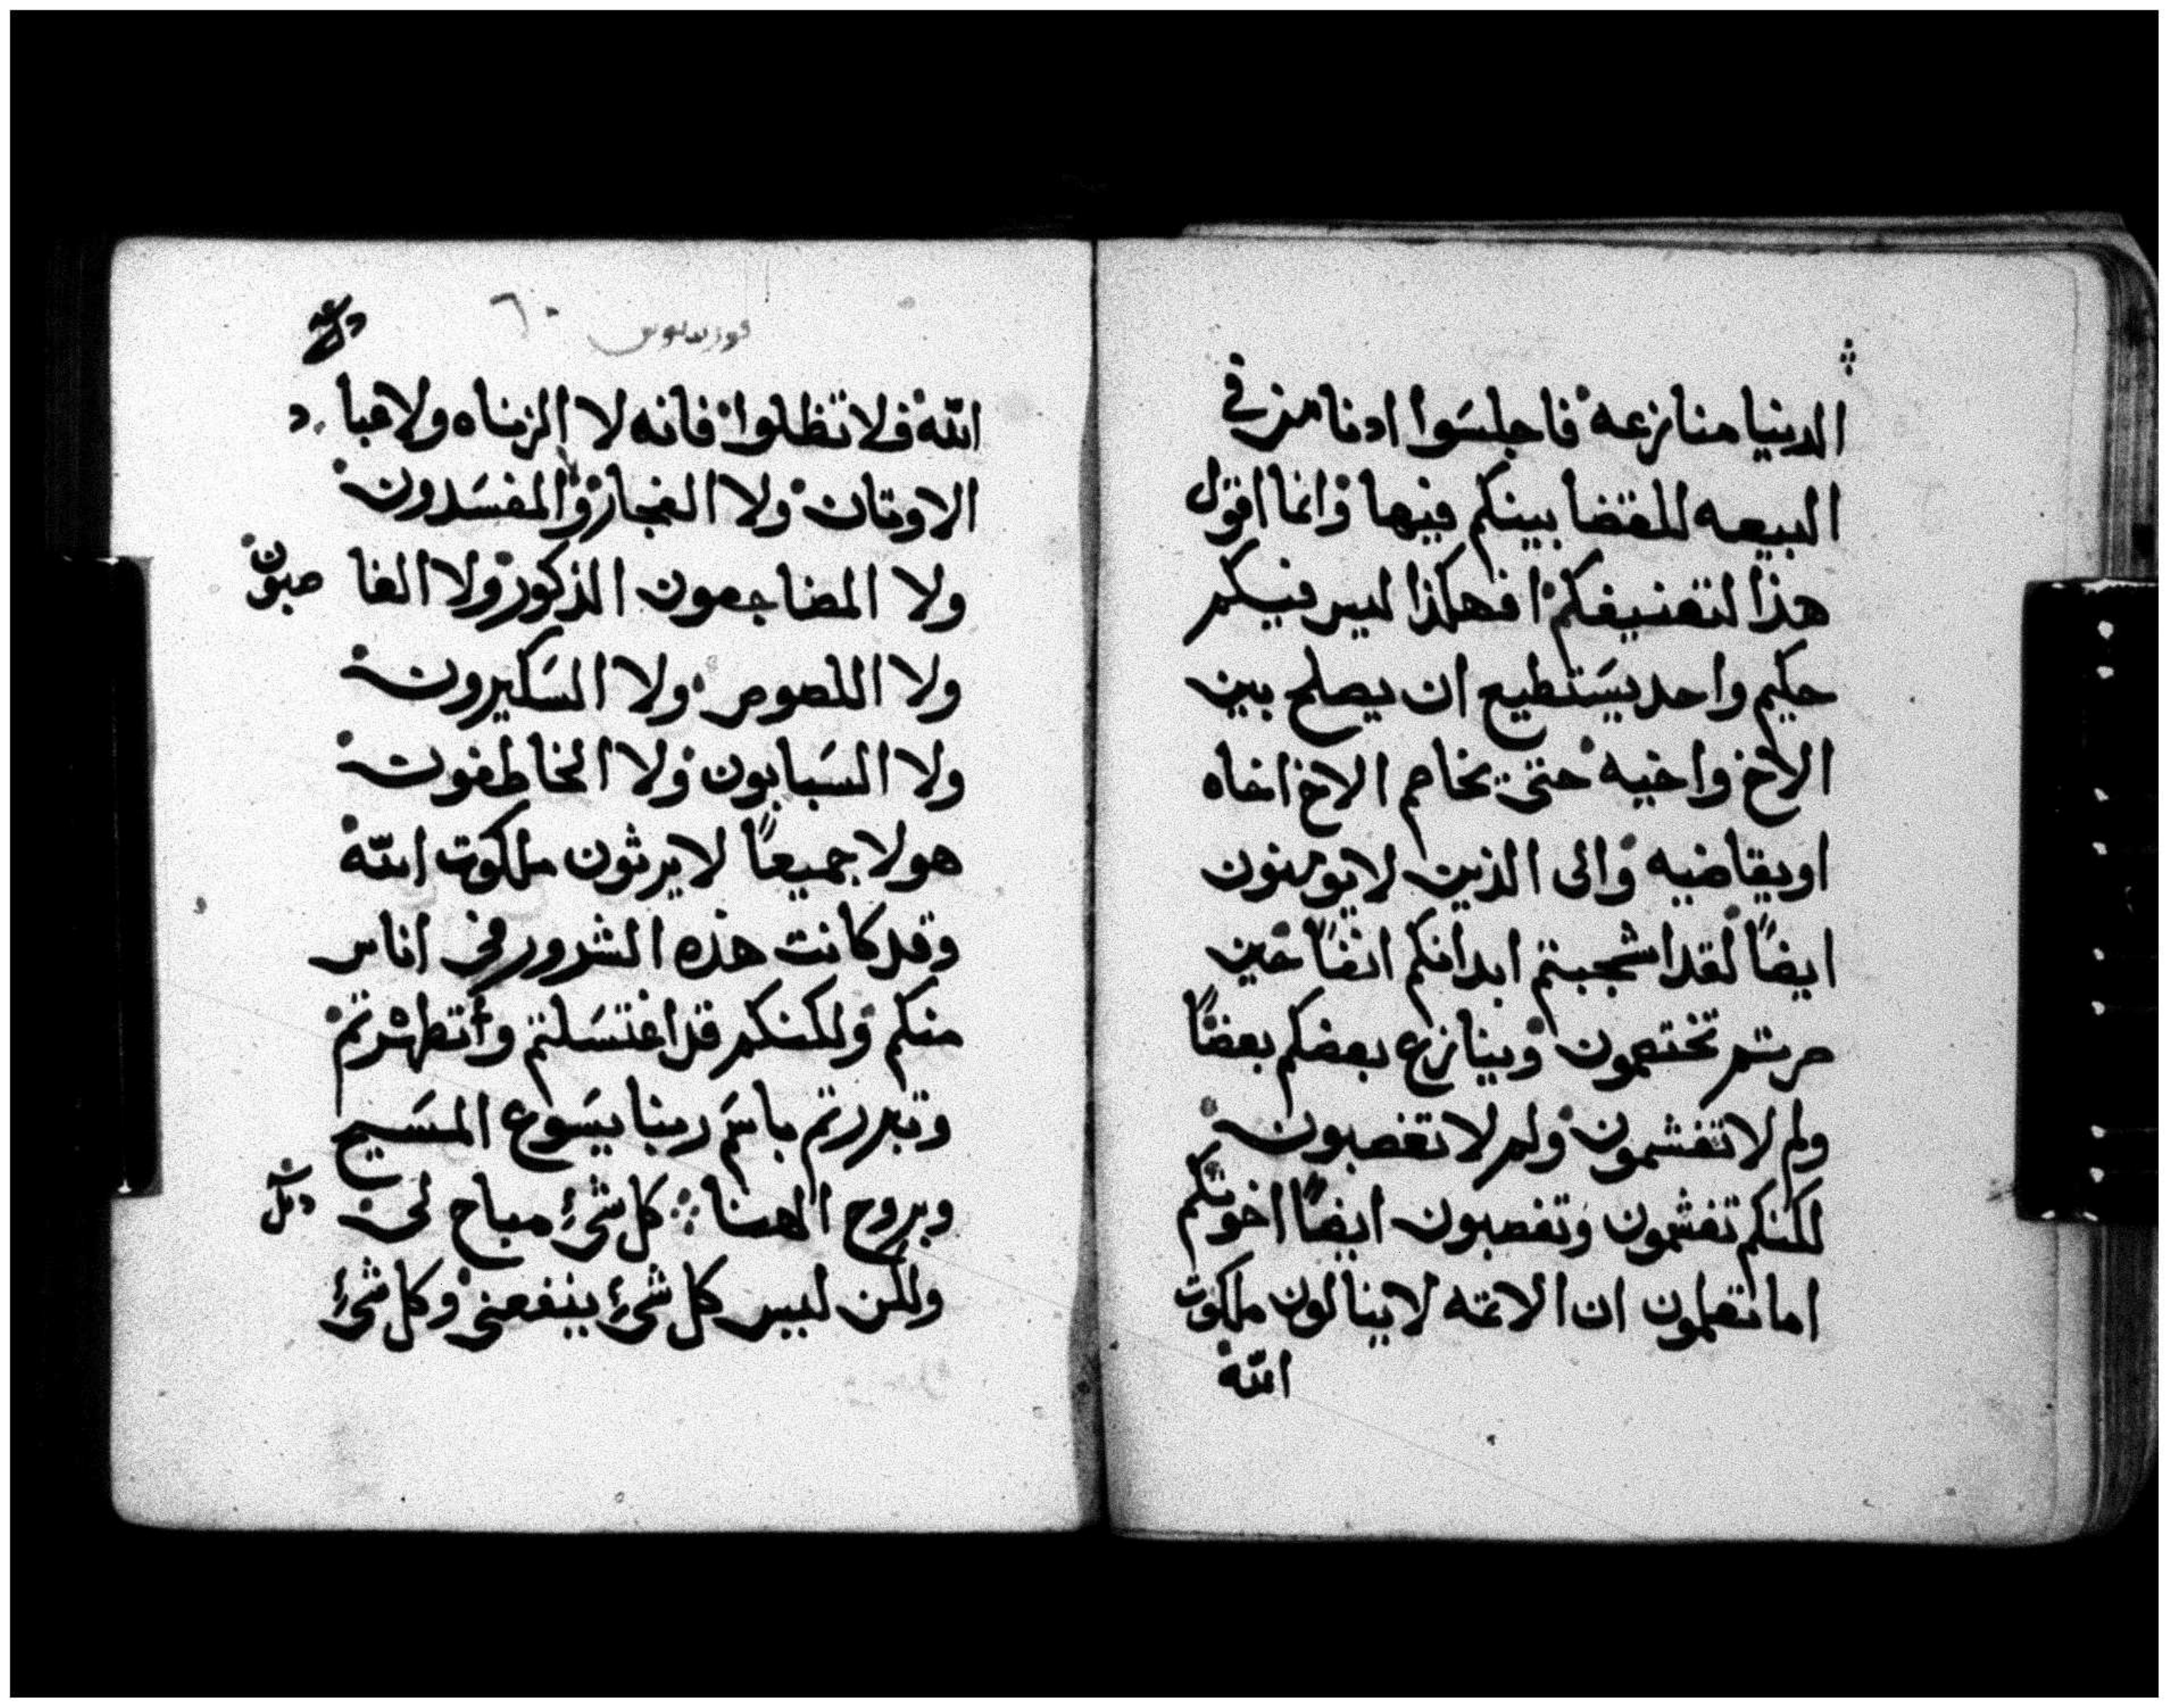 الدينيا منازعه فاجلسوا ادنا من في
البيعه للقضا بينكم فيها وانما اقول
هذا لتعنيفكم افهكذا ليس فيكم
حكيم واحد يستطيع ان يصلح بين
الاخ واخيه حتى يخاصم الاخ اخاه
او يقاضيه والى الذين لا يومنون
ايضاً لقد اشجبتم ابدانكم انفاً حين
صرتم تختصمون وينازع بعضكم بعضاً
ولم لا تغشمون ولم لا تغصبون
لكنكم تغشمون وتغصبون ايضاً اخوتكم
اما تعلمون ان الاثمه لا ينالون ملكوت
الله
٦٠
الله فلا تظلوا فانه لا الزناه ولا عباد
الاوتان ولا الفجار والمفسدون
ولا المضاجعون الذكور ولا الغاصبون
ولا اللصوص ولا السكيرون
ولا السبابون ولا الخاطفون
هولا جميعاً لا يرثون ملكوت الله
وقد كانت هذه الشرور في اناس
منكم ولكنكم قد اغتسلتم واتطهرتم
وتبررتم باسم ربنا يسوع المسيح
وبروح الهنا كل شيء مباح لي
ولكن ليس كل شيء ينفعني وكل شيء